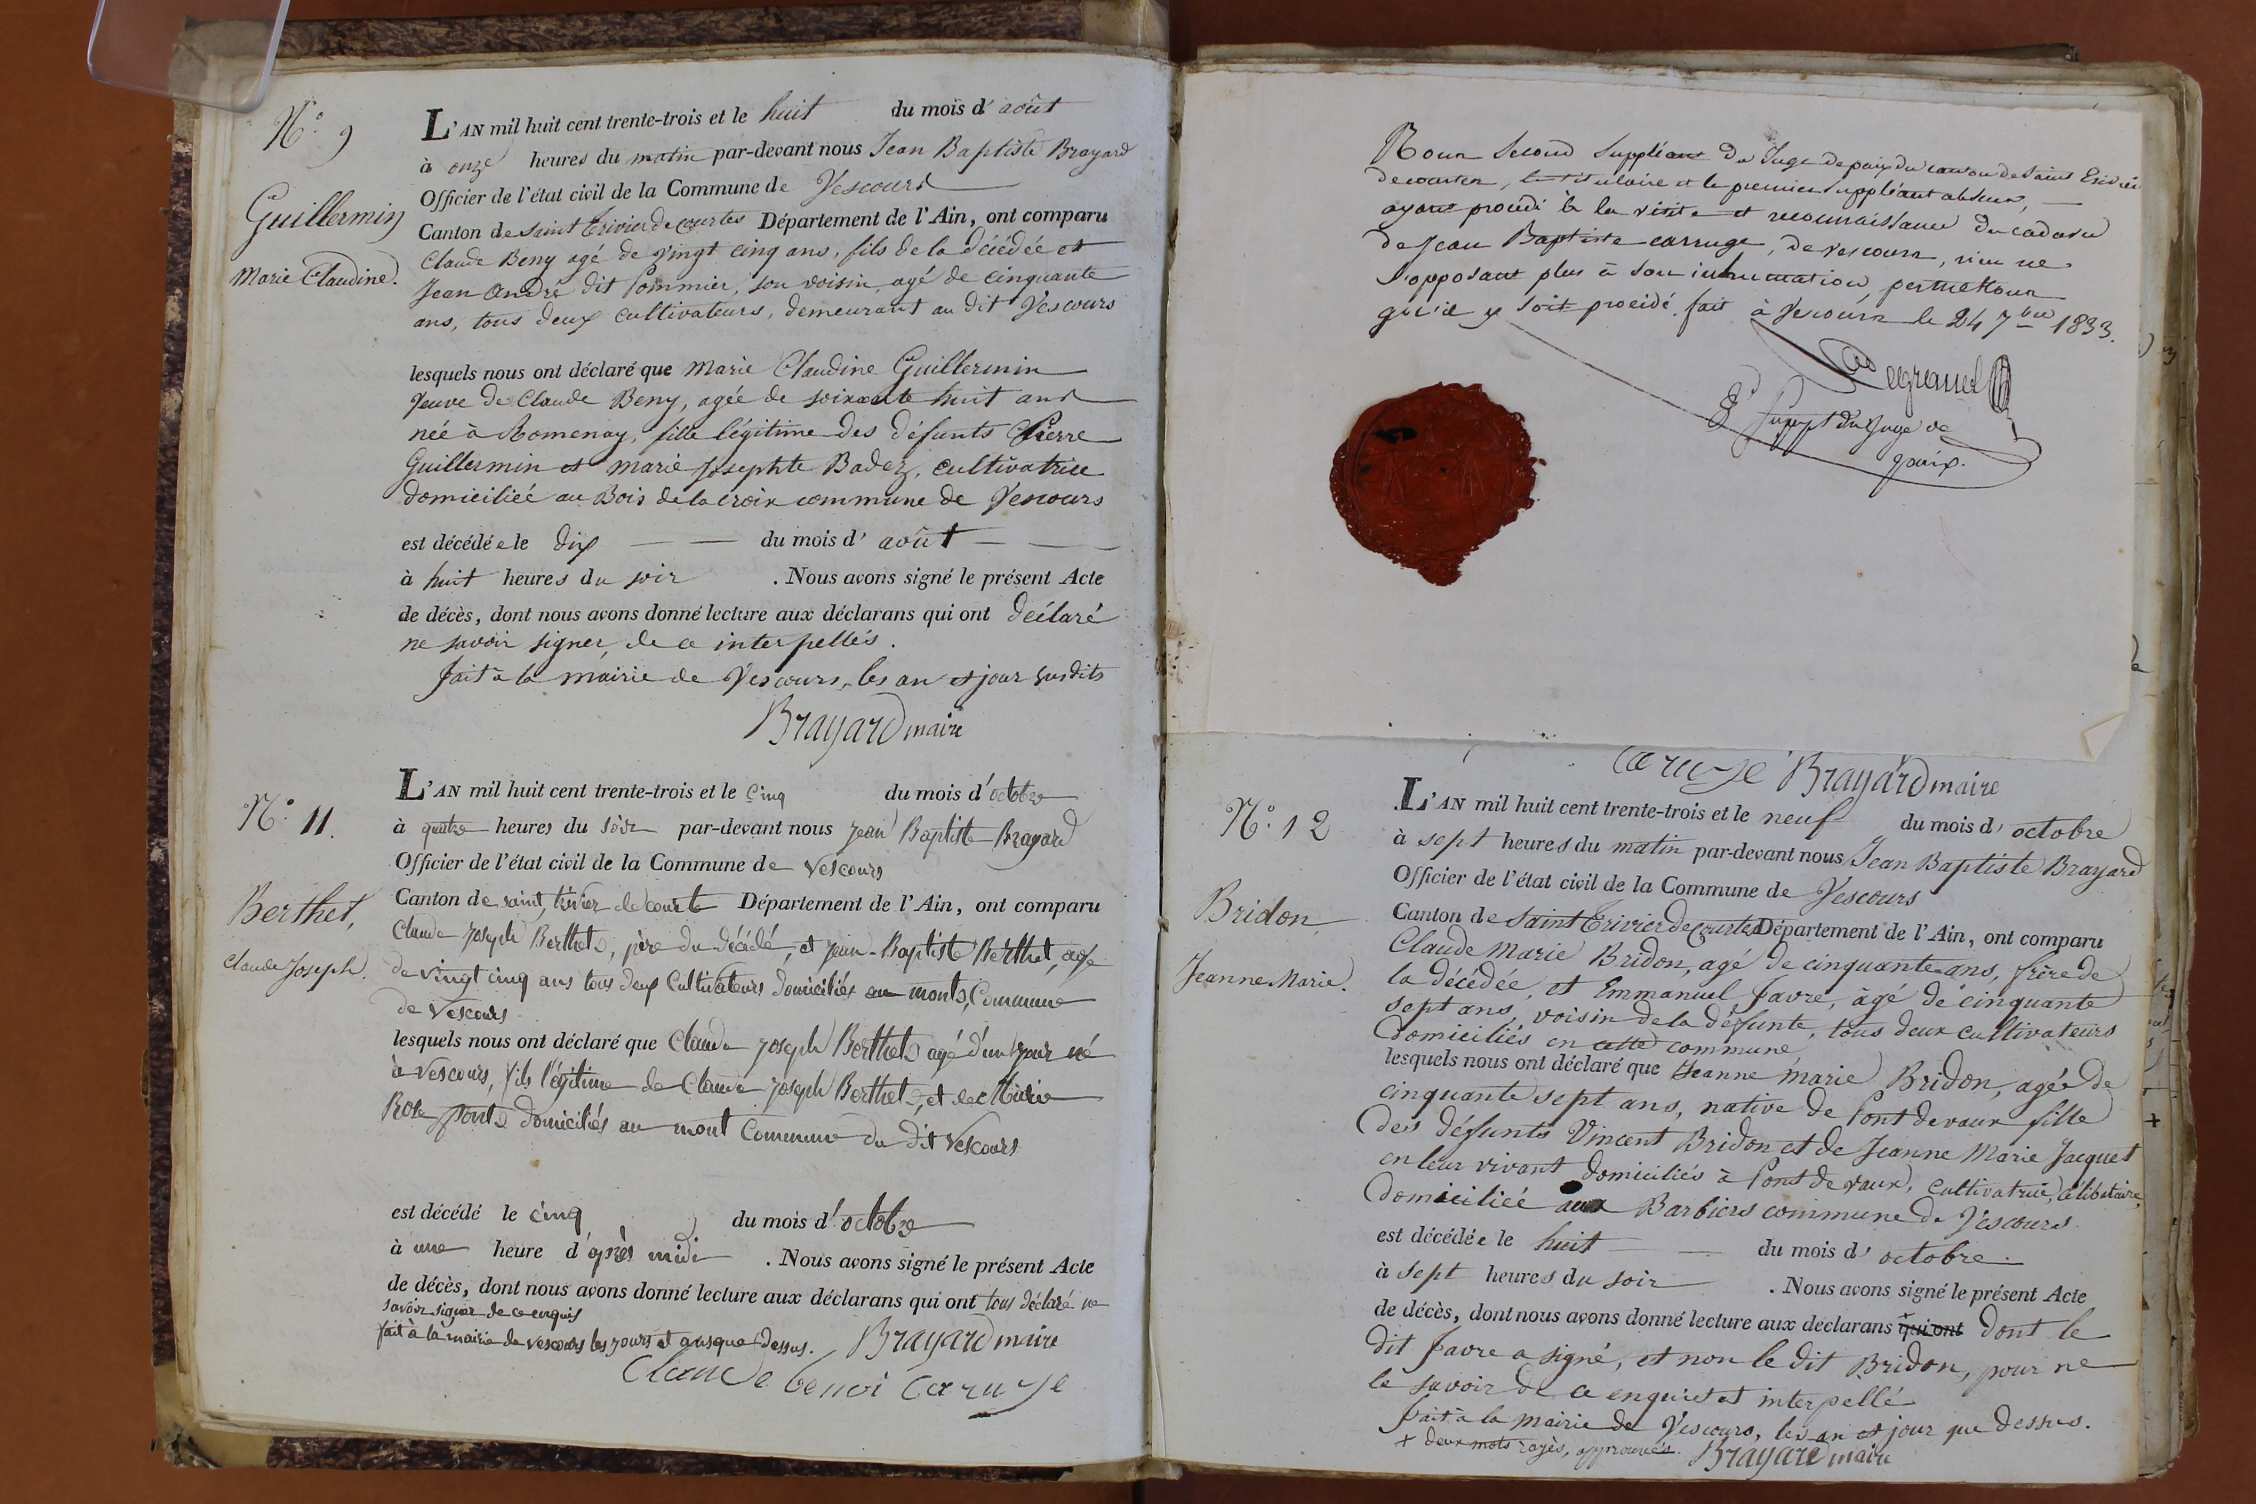 N.º 9
Guillermin
Marie Claudine.
L'AN mil huit cent trente-trois et le huit du mois d'août
à onze heures du matin par-devant nous Jean Baptiste Brayard
Officier de l'état civil de la Commune de Vescours
Canton de saint Trivier de Courtes Département de l'Ain, ont comparu
Claude Beny agé de vingt cinq ans, fils de la décédée et
Jean André dit Pommier, son voisin, agé de cinquante
ans, tous deux cultivateurs, demeurant au dit Vescours
lesquels nous ont déclaré que Marie Claudine Guillermin
veuve de Claude Beny, agée de soixante huit ans
née à Romenay, fille légitime des défunts Pierre
Guillermin et marie Josephte Badez, cultivatrice
domiciliée au Bois de la croix commune de Vescours
est décédée le dix du mois d'août
à huit heures du soir . Nous avons signé le présent Acte
de décès, dont nous avons donné lecture aux déclarans qui ont déclaré
ne savoir signer, de ce interpellés.
fait à la mairie de Vescours, les an et jour susdits
Brayard maire
N.º 11.
Berthet,
Claude Joseph.
L'AN mil huit cent trente-trois et le cinq du mois d'octobre
à quatre heures du soir par-devant nous jean Baptiste Brayard
Officier de l'état civil de la Commune de Vescours
Canton de saint trivier de courte Département de l'Ain, ont comparu
Claude Joseph Berthet, père du décédé, et jean-Baptiste Berthet, agé
de vingt cinq ans tous deux Cultivateurs domiciliés au mont, Commune
de Vescours
lesquels nous ont déclaré que Claude joseph Berthet agé d'un jour né
à Vescours, fils légitime de Claude Joseph Berthet, et de Marie
Rose pont domiciliés au mont Commune du dit Vescours
est décédé le cinq du mois d'octobre
à une heure d'après midi . Nous avons signé le présent Acte
de décès, dont nous avons donné lecture aux déclarans qui ont tous déclaré ne
savoir signer de ce enquis
fait à la mairie de Vescours les jours et an que dessus. Brayard maire
Claude benoi Caruge
Nous second suppléant du Juge de paix du canton de Saint Trivier
de courtes, le titulaire et le premier suppléant absens,
ayant procédé à la visite et reconnaissance du cadavre
de Jean Baptiste carruge, de vescours, rien ne
s'opposant plus à son inhumation, permettons
qu'il y soit procédé. fait à Vescours le 24 7bre 1833.
2e Suppt du Juge de
paix.
Caruge Brayard maire
N.º 12
Bridon
Jeanne Marie.
L'AN mil huit cent trente-trois et le neuf du mois d'octobre
à sept heures du matin par-devant nous Jean Baptiste Brayard
Officier de l'état civil de la Commune de Vescours
Canton de Saint Trivier de Courtes Département de l'Ain, ont comparu
Claude Marie Bridon, agé de cinquante ans, frère de
la décédée, et Emmanuel Favre, âgé de cinquante
sept ans, voisin de la défunte, tous deux cultivateurs
domiciliés en cette commune,
lesquels nous ont déclaré que Jeanne Marie Bridon, agée de
cinquante sept ans, native de Pont de vaux fille
des défunts Vincent Bridon et de Jeanne Marie Jacquet
en leur vivant domiciliés à Pont de vaux, cultivatrice, célibataire,
domiciliée aux Barbiers commune de Vescours.
est décédée le huit du mois d'octobre.
à sept heures du soir . Nous avons signé le présent Acte
de décès, dont nous avons donné lecture aux déclarans qui ont + dont le
dit Favre a signé, et non le dit Bridon, pour ne
le savoir de ce enquis et interpellé
fait à la mairie de Vescours, les an et jour que dessus.
+ deux mots rayés, approuvés. Brayard maire